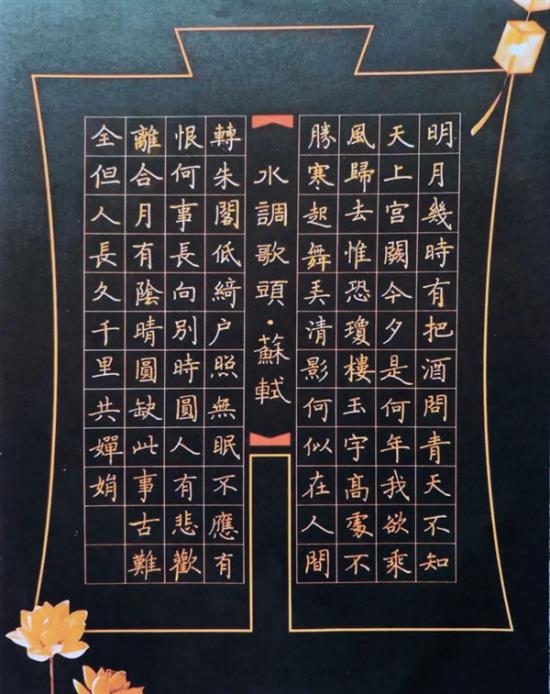 明月幾時有把酒問青天不知
天上宮闕今夕是何年我欲乘
風歸去惟恐瓊樓玉宇髙處不
勝寒起舞弄清影何似在人間
水調歌頭·蘇軾
轉朱閣低綺户照無眠不應有
恨何事長向別時圓人有悲歡
離合月有陰晴圓缺此事古難
全但人長久千里共嬋娟